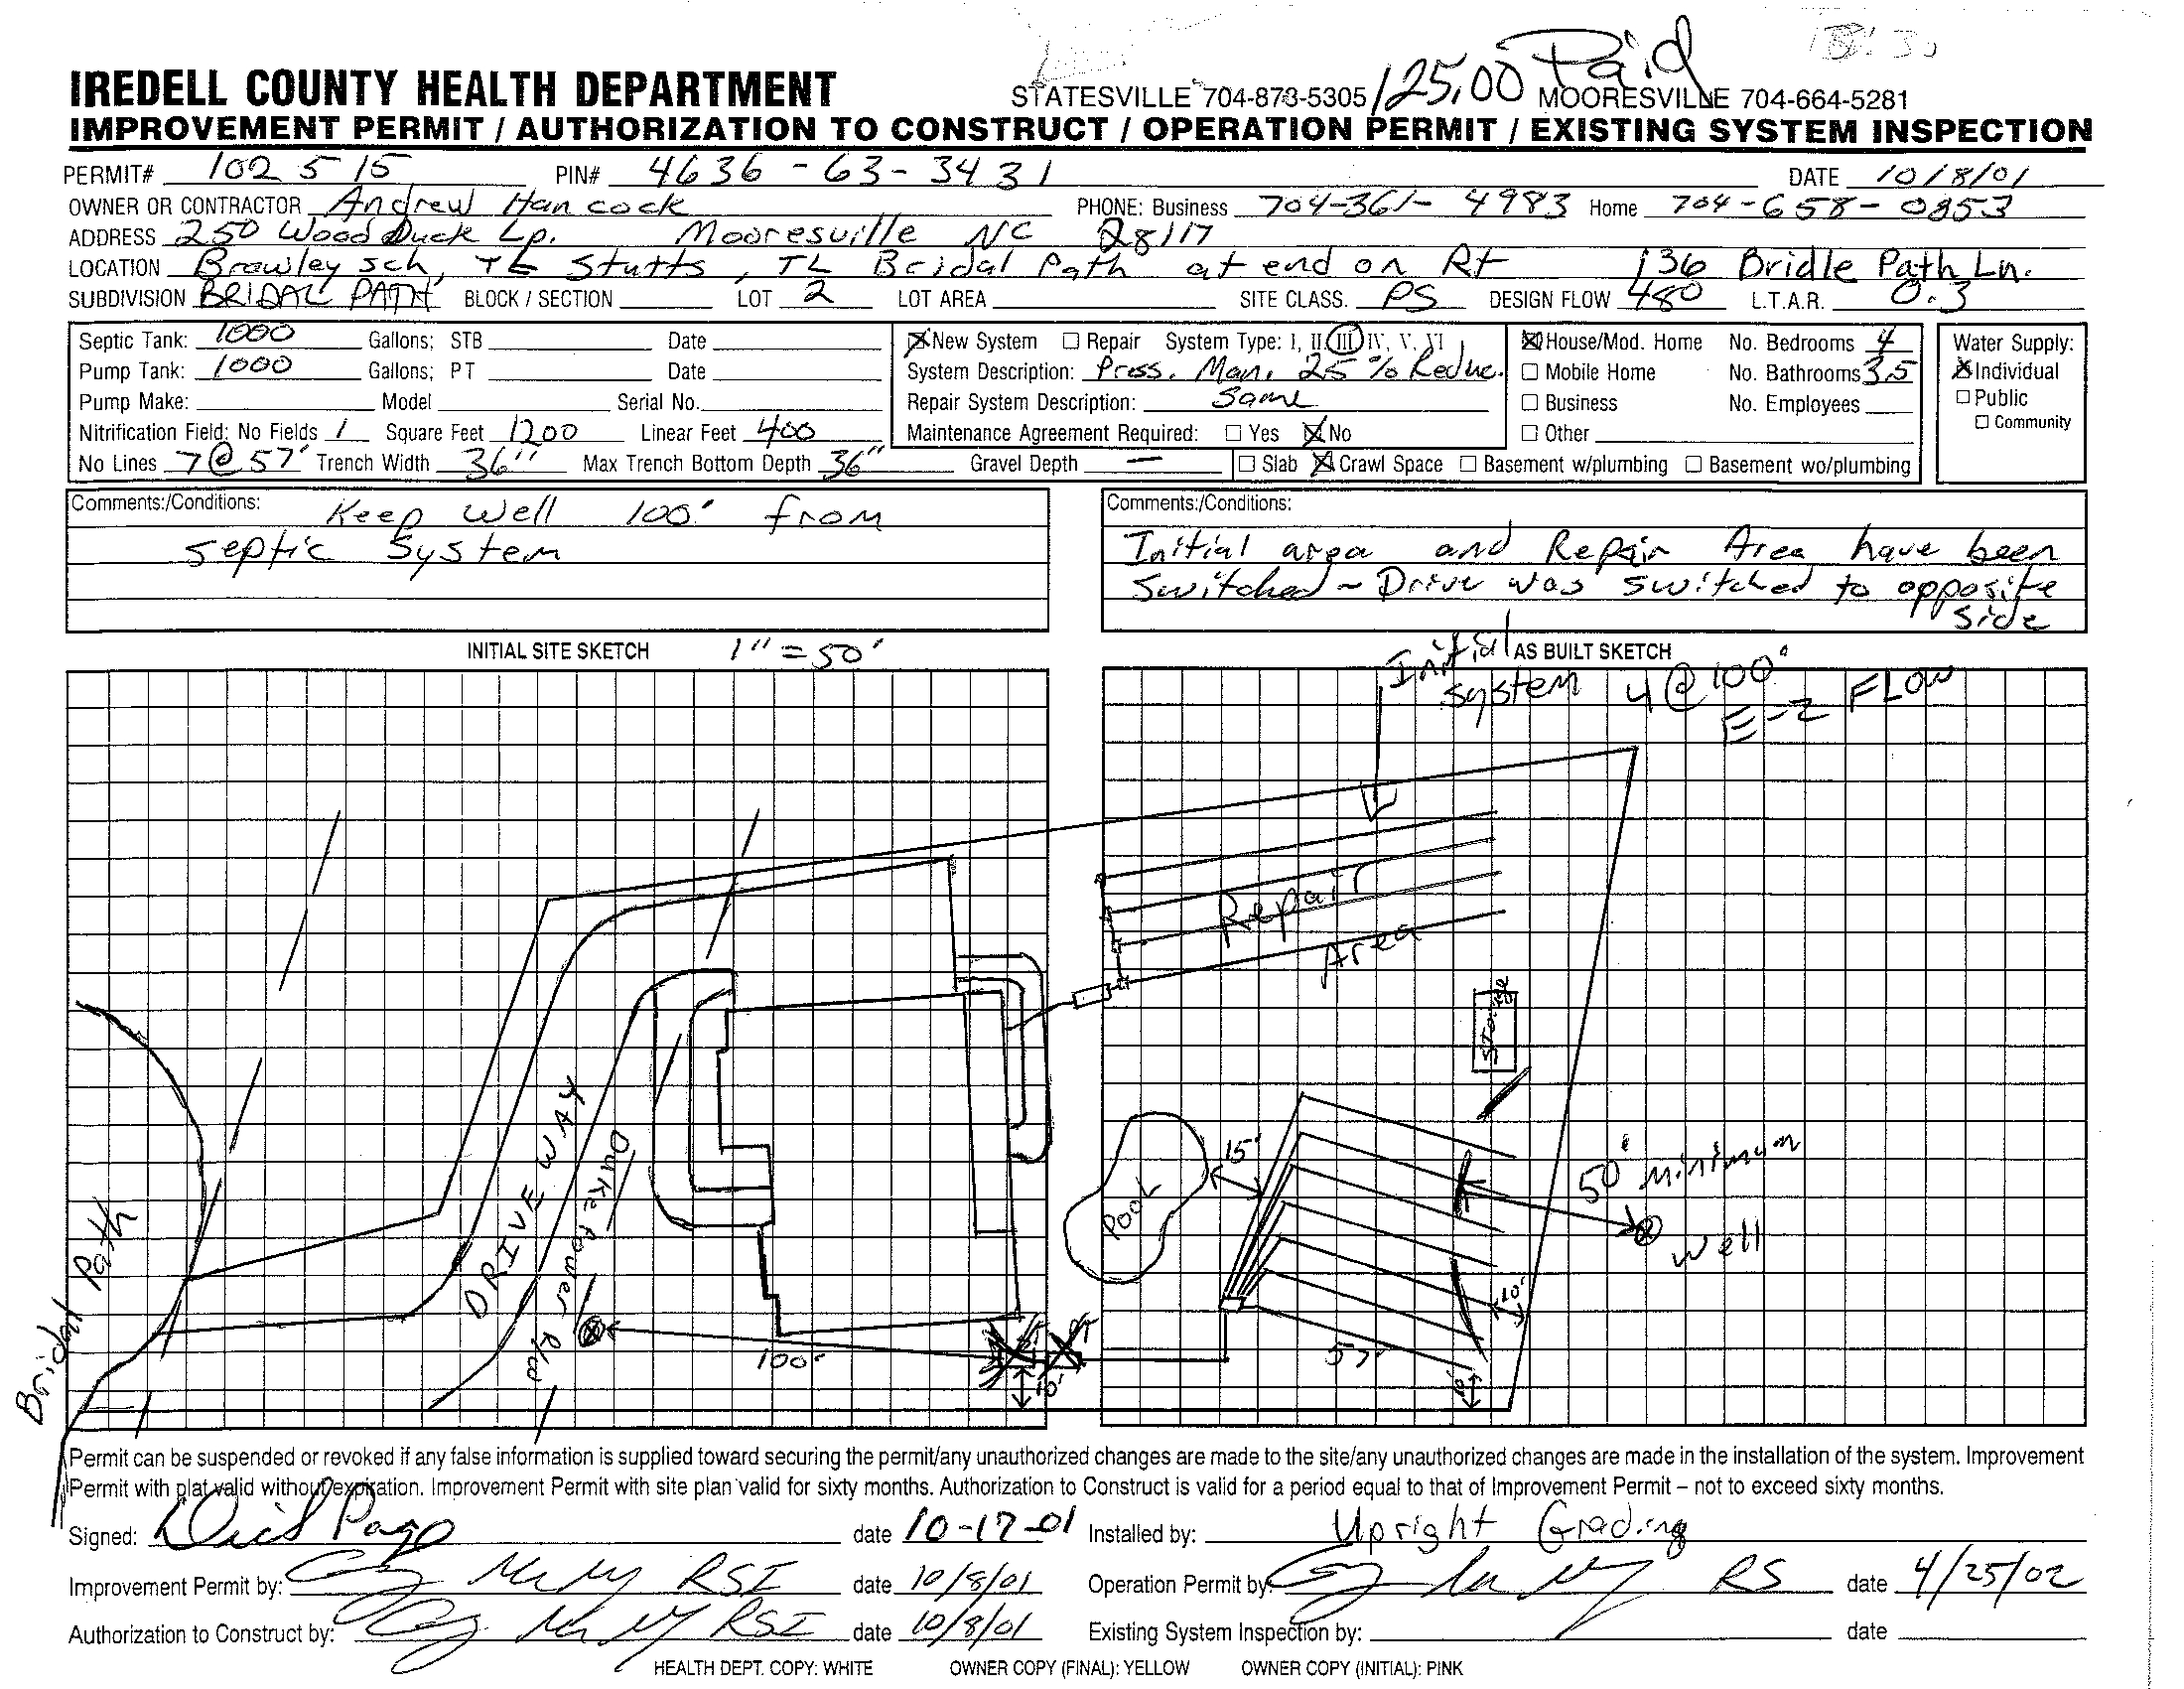 125.00 Paid
IREDELL COUNTY HEALTH DEPARTMENT STATESVILLE 704-873-5305 MOORESVILLE 704-664-5281
IMPROVEMENT PERMIT / AUTHORIZATION TO CONSTRUCT / OPERATION PERMIT / EXISTING SYSTEM INSPECTION
PERMIT# 102515 PIN# 4636-63-3431 DATE 10/8/01
OWNER OR CONTRACTOR Andrew Hancock PHONE: Business 704-361-4983 Home 704-658-0853
ADDRESS 250 Wood Duck Lp. Mooresville NC 28117
LOCATION Brawley sch, TL Stutts, TL Bridal Path at end on Rt 136 Bridle Path Ln.
SUBDIVISION BRIDAL PATH BLOCK / SECTION LOT 2 LOT AREA SITE CLASS. PS DESIGN FLOW 480 L.T.A.R. 0.3
Septic Tank: 1000 Gallons; STB Date
Pump Tank: 1000 Gallons; PT Date
Pump Make: Model Serial No.
Nitrification Field: No Fields 1 Square Feet 1200 Linear Feet 400
No Lines 7@57' Trench Width 36" Max Trench Bottom Depth 36" Gravel Depth —
New System Repair System Type: I, II, III, IV, V, VI
System Description: Press. Man. 25% Reduc.
Repair System Description: Same
Maintenance Agreement Required: Yes No
House/Mod. Home No. Bedrooms 4
Mobile Home No. Bathrooms 3.5
Business No. Employees
Other
Slab Crawl Space Basement w/plumbing Basement wo/plumbing
Water Supply:
Individual
Public
Community
Comments:/Conditions: Keep well 100' from
septic system
Comments:/Conditions:
Initial area and Repair Area have been
switched - Drive was switched to opposite
side
INITIAL SITE SKETCH 1"=50'
AS BUILT SKETCH
Initial
system 4@100'
E-Z FLOW
Repair
Area
Storage
DRIVEWAY
Duke Power R/W
Bridal Path
Pool
15'
50' minimum
well
10'
57'
10'
100'
10'
Permit can be suspended or revoked if any false information is supplied toward securing the permit/any unauthorized changes are made to the site/any unauthorized changes are made in the installation of the system. Improvement
Permit with plat valid without expiration. Improvement Permit with site plan valid for sixty months. Authorization to Construct is valid for a period equal to that of Improvement Permit – not to exceed sixty months.
Signed: date 10-17-01 Installed by: Upright Grading
Improvement Permit by: RSI date 10/8/01 Operation Permit by: RS date 4/25/02
Authorization to Construct by: RSI date 10/8/01 Existing System Inspection by: date
HEALTH DEPT. COPY: WHITE OWNER COPY (FINAL): YELLOW OWNER COPY (INITIAL): PINK